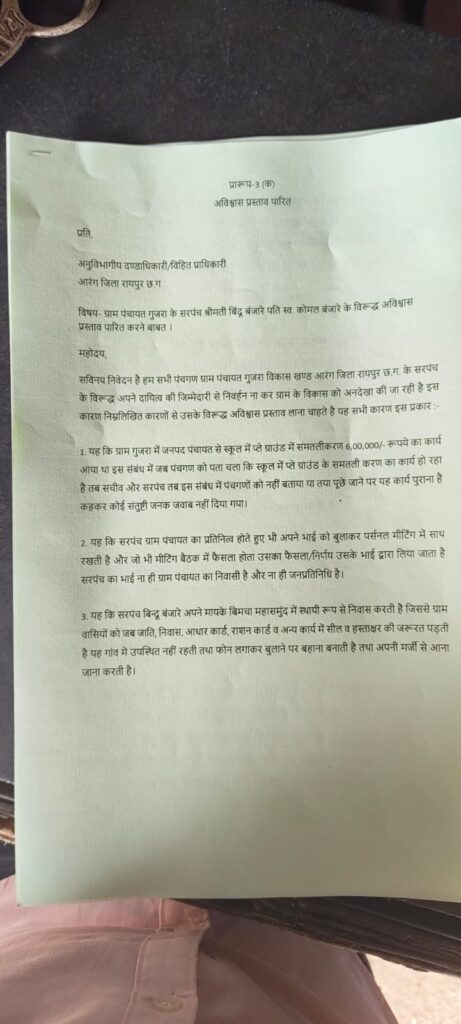 प्रारूप-3 (क)
अविश्वास प्रस्ताव पारित
प्रति,
अनुविभागीय दण्डाधिकारी/विहित प्राधिकारी
आरंग जिला रायपुर छ.ग
विषय- ग्राम पंचायत गुजरा के सरपंच श्रीमती बिंदू बंजारे पति स्व. कोमल बंजारे के विरूद्ध अविश्वास
प्रस्ताव पारित करने बाबत ।
महोदय,
सविनय निवेदन है हम सभी पंचगण ग्राम पंचायत गुजरा विकास खण्ड आरंग जिला रायपुर छ.ग. के सरपंच
के विरूद्ध अपने दायित्व की जिम्मेदारी से निवर्हन ना कर ग्राम के विकास को अनदेखा की जा रही है इस
कारण निम्नलिखित कारणों से उसके विरूद्ध अविश्वास प्रस्ताव लाना चाहते है यह सभी कारण इस प्रकार :-
1. यह कि ग्राम गुजरा में जनपद पंचायत से स्कूल में प्ले ग्राउंड में समतलीकरण 6,00,000/- रूपये का कार्य
आया था इस संबंध में जब पंचगण को पता चला कि स्कूल में प्ले ग्राउंड के समतली करण का कार्य हो रहा
है तब सचीव और सरपंच तब इस संबंध में पंचगणों को नही बताया या तया पूछे जाने पर यह कार्य पुराना है
कहकर कोई संतुष्टी जनक जवाब नहीं दिया गया।
2. यह कि सरपंच ग्राम पंचायत का प्रतिनित्व होते हुए भी अपने भाई को बुलाकर पर्सनल मीटिंग में साथ
रखती है और जो भी मीटिंग बैठक में फैसला होता उसका फैसला/निर्णय उसके भाई द्वारा लिया जाता है
सरपंच का भाई ना ही ग्राम पंचायत का निवासी है और ना ही जनप्रतिनिधि है।
3. यह कि सरपंच बिन्दू बंजारे अपने मायके बिमचा महासमुंद में स्थायी रूप से निवास करती है जिससे ग्राम
वासियों को जब जाति, निवास, आधार कार्ड, राशन कार्ड व अन्य कार्य में सील व हस्ताक्षर की जरूरत पड़ती
है यह गांव मे उपस्थित नहीं रहती तथा फोन लगाकर बुलाने पर बहाना बनाती है तथा अपनी मर्जी से आना
जाना करती है।